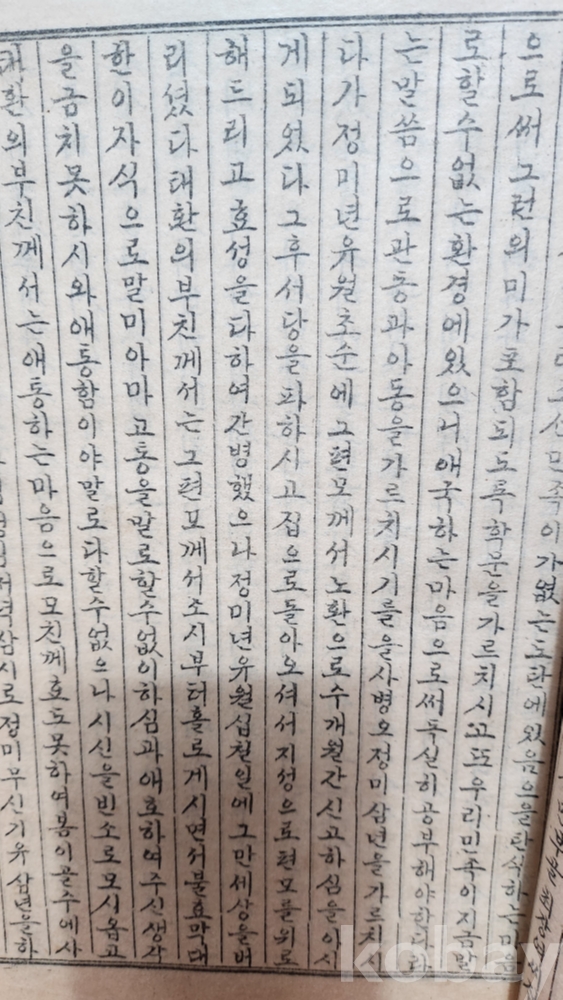 조선민족이가없는도탄에있음으을탄식하는마음
으로써그런의미가포함되도록학문을가르치시고또우리민족이지금말
로할수없는환경에있으니애국하는마음으로써독실히공부해야한다라
는말씀으로관동과아동을가르치시기를을사병오정미삼년을가르치시
다가정미년유월초순에그편모께서노환으로수개월간신고하심을아시
게되었다그후서당을파하시고집으로돌아오셔서지성으로편모를위로
해드리고효성을다하여간병했으나정미년유월십칠일에그만세상을버
리셨다태환의부친께서는그편모께서소시부터홀로게시면서불효막대
한이자식으로말미아마고통을말로할수없이하심과애호하여주신생각
을금치못하시와애통함이야말로다할수없으나시신을빈소로모시옵고
태환의부친께서는애통하는마음으로모친께효도못하여봄이골수에사
저녁삼시로정미무신기유삼년을하
kobay